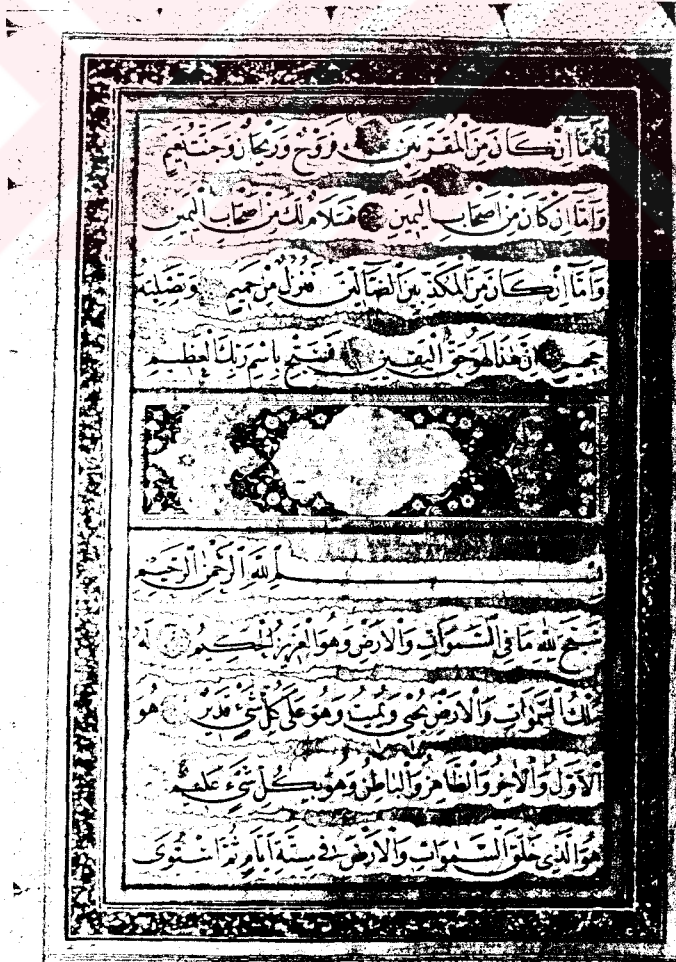 فَاَمَّا اِنْ كَانَ مِنَ الْمُقَرَّبِينَ فَرَوْحٌ وَرَيْحَانٌ وَجَنَّتُ نَعِيمٍ
وَاَمَّا اِنْ كَانَ مِنْ اَصْحَابِ الْيَمِينِ فَسَلَامٌ لَكَ مِنْ اَصْحَابِ الْيَمِينِ
وَاَمَّا اِنْ كَانَ مِنَ الْمُكَذِّبِينَ الضَّالِّينَ فَنُزُلٌ مِنْ حَمِيمٍ وَتَصْلِيَةُ
جَحِيمٍ اِنَّ هٰذَا لَهُوَ حَقُّ الْيَقِينِ فَسَبِّحْ بِاسْمِ رَبِّكَ الْعَظِيمِ
بِسْمِ اللّٰهِ الرَّحْمٰنِ الرَّحِيمِ
سَبَّحَ لِلّٰهِ مَا فِي السَّمٰوَاتِ وَالْاَرْضِ وَهُوَ الْعَزِيزُ الْحَكِيمُ لَهُ
مُلْكُ السَّمٰوَاتِ وَالْاَرْضِ يُحْيِي وَيُمِيتُ وَهُوَ عَلَى كُلِّ شَيْءٍ قَدِيرٌ هُوَ
الْاَوَّلُ وَالْاٰخِرُ وَالظَّاهِرُ وَالْبَاطِنُ وَهُوَ بِكُلِّ شَيْءٍ عَلِيمٌ
هُوَ الَّذِي خَلَقَ السَّمٰوَاتِ وَالْاَرْضَ فِي سِتَّةِ اَيَّامٍ ثُمَّ اسْتَوَى